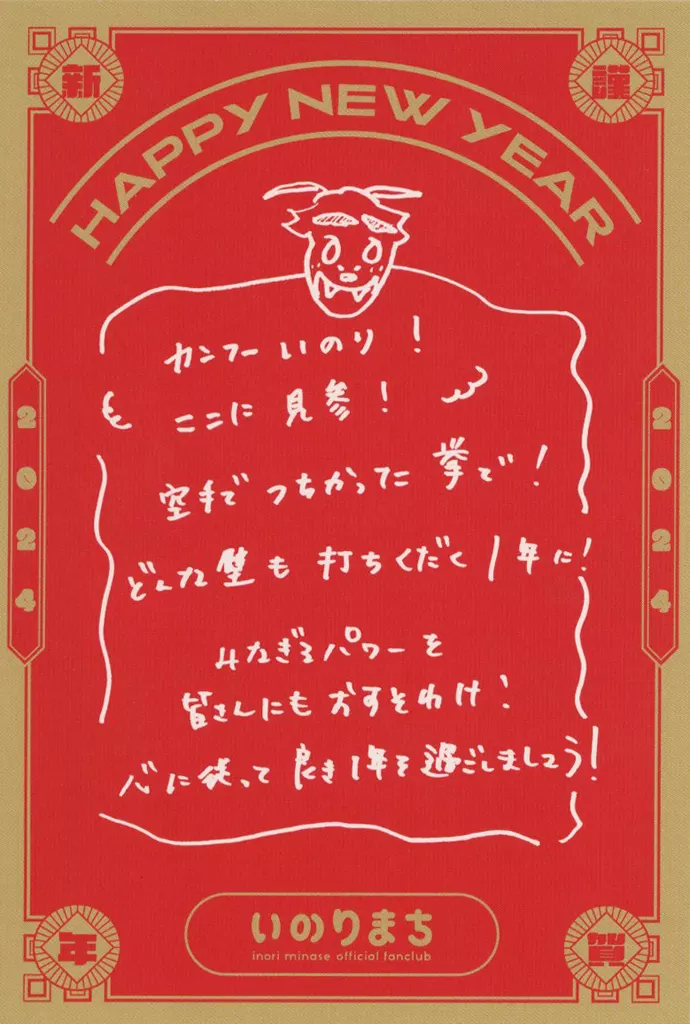 謹
賀
新
年
HAPPY NEW YEAR
2024
2024
カンフーいのり!
ここに 見参!
空手で つちかった 拳で!
どんな壁も 打ちくだく 1年に!
みなぎるパワーを
皆さんにも おすそわけ!
心に従って 良き1年を過ごしましょう!
いのりまち
inori minase official fanclub